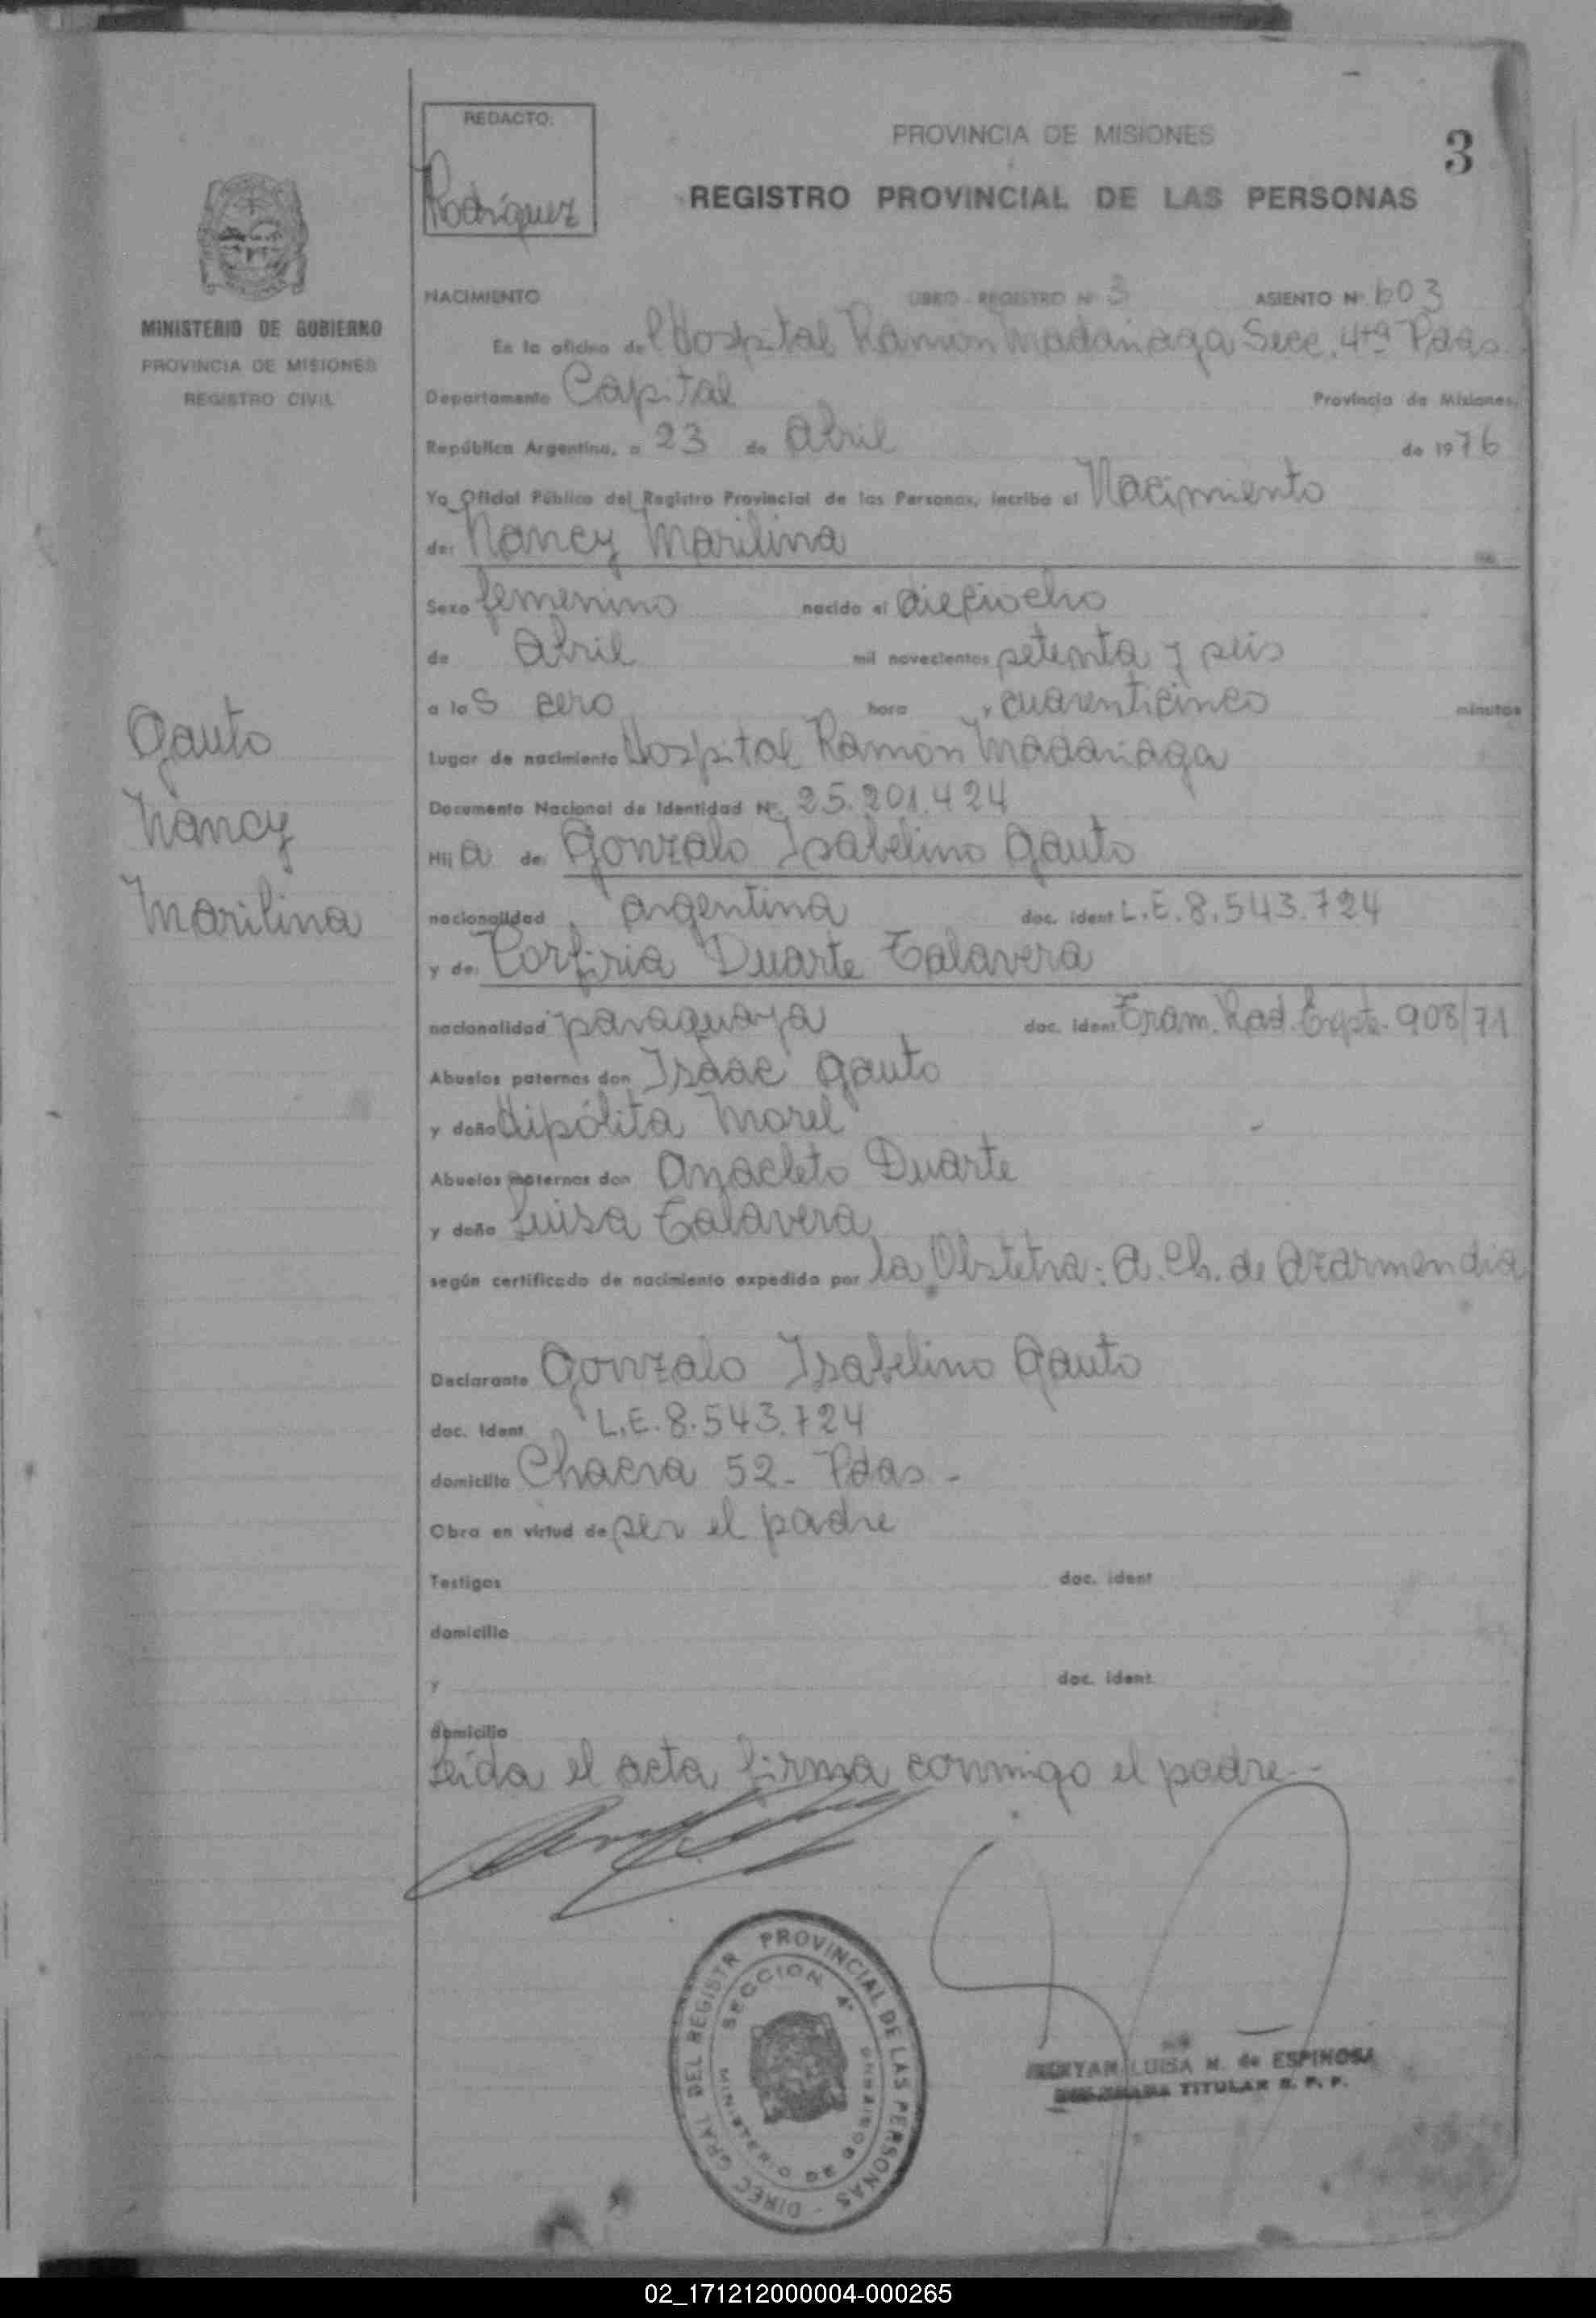 REDACTO:
Rodríguez
PROVINCIA DE MISIONES
3
REGISTRO PROVINCIAL DE LAS PERSONAS
MINISTERIO DE GOBIERNO
PROVINCIA DE MISIONES
REGISTRO CIVIL
Gauto
Nancy
Marilina
NACIMIENTO LIBRO - REGISTRO Nº 3 ASIENTO Nº 603
En la oficina del Hospital Ramón Madariaga Secc. 4ta Pdas.
Departamento Capital Provincia de Misiones,
República Argentina, a 23 de Abril de 1976
Yo Oficial Público del Registro Provincial de las Personas, inscribo el Nacimiento
de: Nancy Marilina
Sexo femenino nacido el dieciocho
de Abril mil novecientos setenta y seis
a las cero hora y cuarenticinco minutos
Lugar de nacimiento Hospital Ramón Madariaga
Documento Nacional de Identidad Nº 25.201.424
Hija de: Gonzalo Isabelino Gauto
nacionalidad argentina doc. ident L.E. 8.543.724
y de: Porfiria Duarte Talavera
nacionalidad paraguaya doc. ident Tram. Rad. Expte. 908/71
Abuelos paternos don Isaac Gauto
y doña Hipólita Morel
Abuelos maternos don Anacleto Duarte
y doña Luisa Talavera
según certificado de nacimiento expedido por la Obstetra: A. Ch. de Azarmendia
Declarante Gonzalo Isabelino Gauto
doc. ident L.E. 8.543.724
domicilio Chacra 52 - Pdas -
Obra en virtud de ser el padre
Testigos doc. ident
domicilio
y doc. ident.
domicilio
Leída el acta firma conmigo el padre.-
DIREC GRAL DEL REGISTR PROVINCIAL DE LAS PERSONAS -
SECCION 4ª
MINISTERIO DE GOBIERNO
LUISA N. de ESPINOSA
TITULAR R. P. P.
02_171212000004-000265